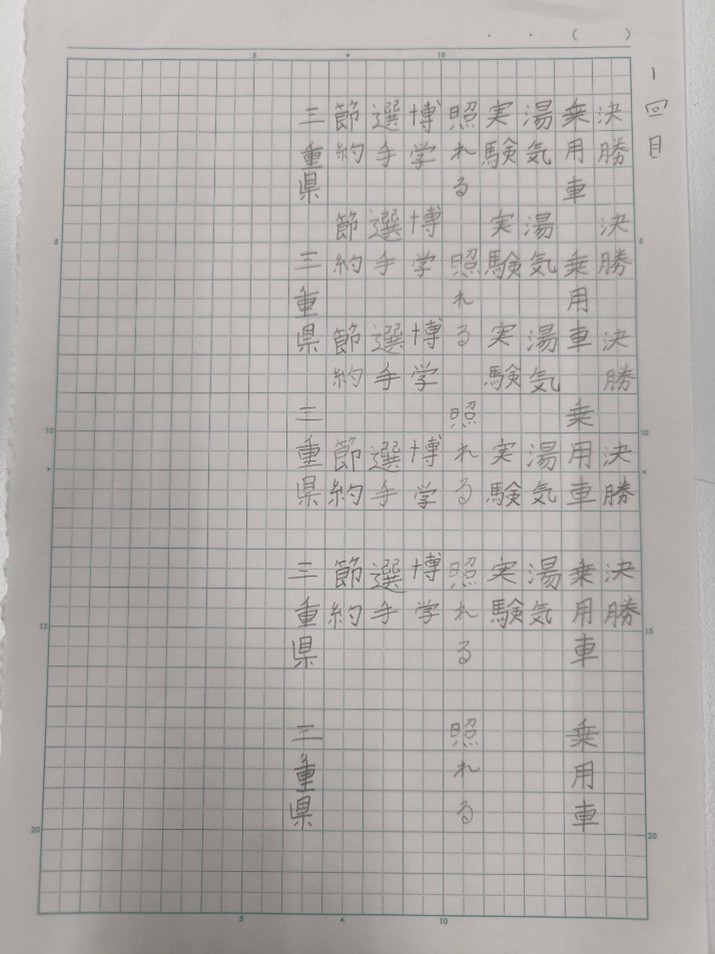 1回目
決勝 決勝 決勝 決勝 決勝
乗用車 乗用車 乗用車 乗用車 乗用車
湯気 湯気 湯気 湯気 湯気
実験 実験 実験 実験 実験
照れる 照れる 照れる 照れる 照れる
博学 博学 博学 博学 博学
選手 選手 選手 選手 選手
節約 節約 節約 節約 節約
三重県 三重県 三重県 三重県 三重県
5 10
5 10 15 20
5 10 15 20
5 10